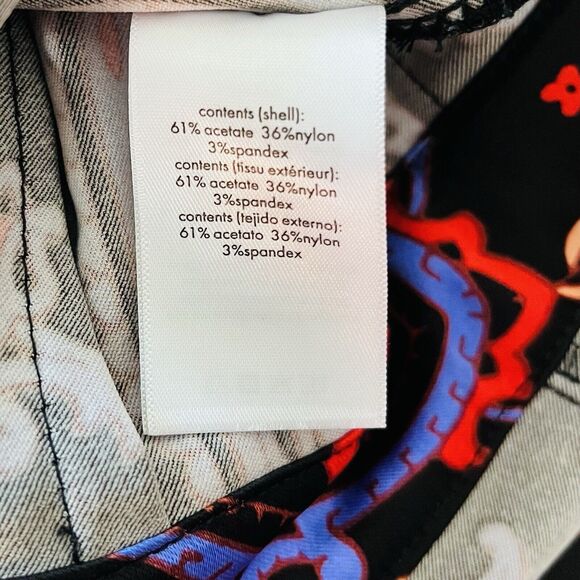 contents (shell):
61% acetate 36%nylon
3%spandex
contents (tissu extérieur):
61% acetate 36%nylon
3%spandex
contents (tejido externo):
61% acetato 36%nylon
3%spandex